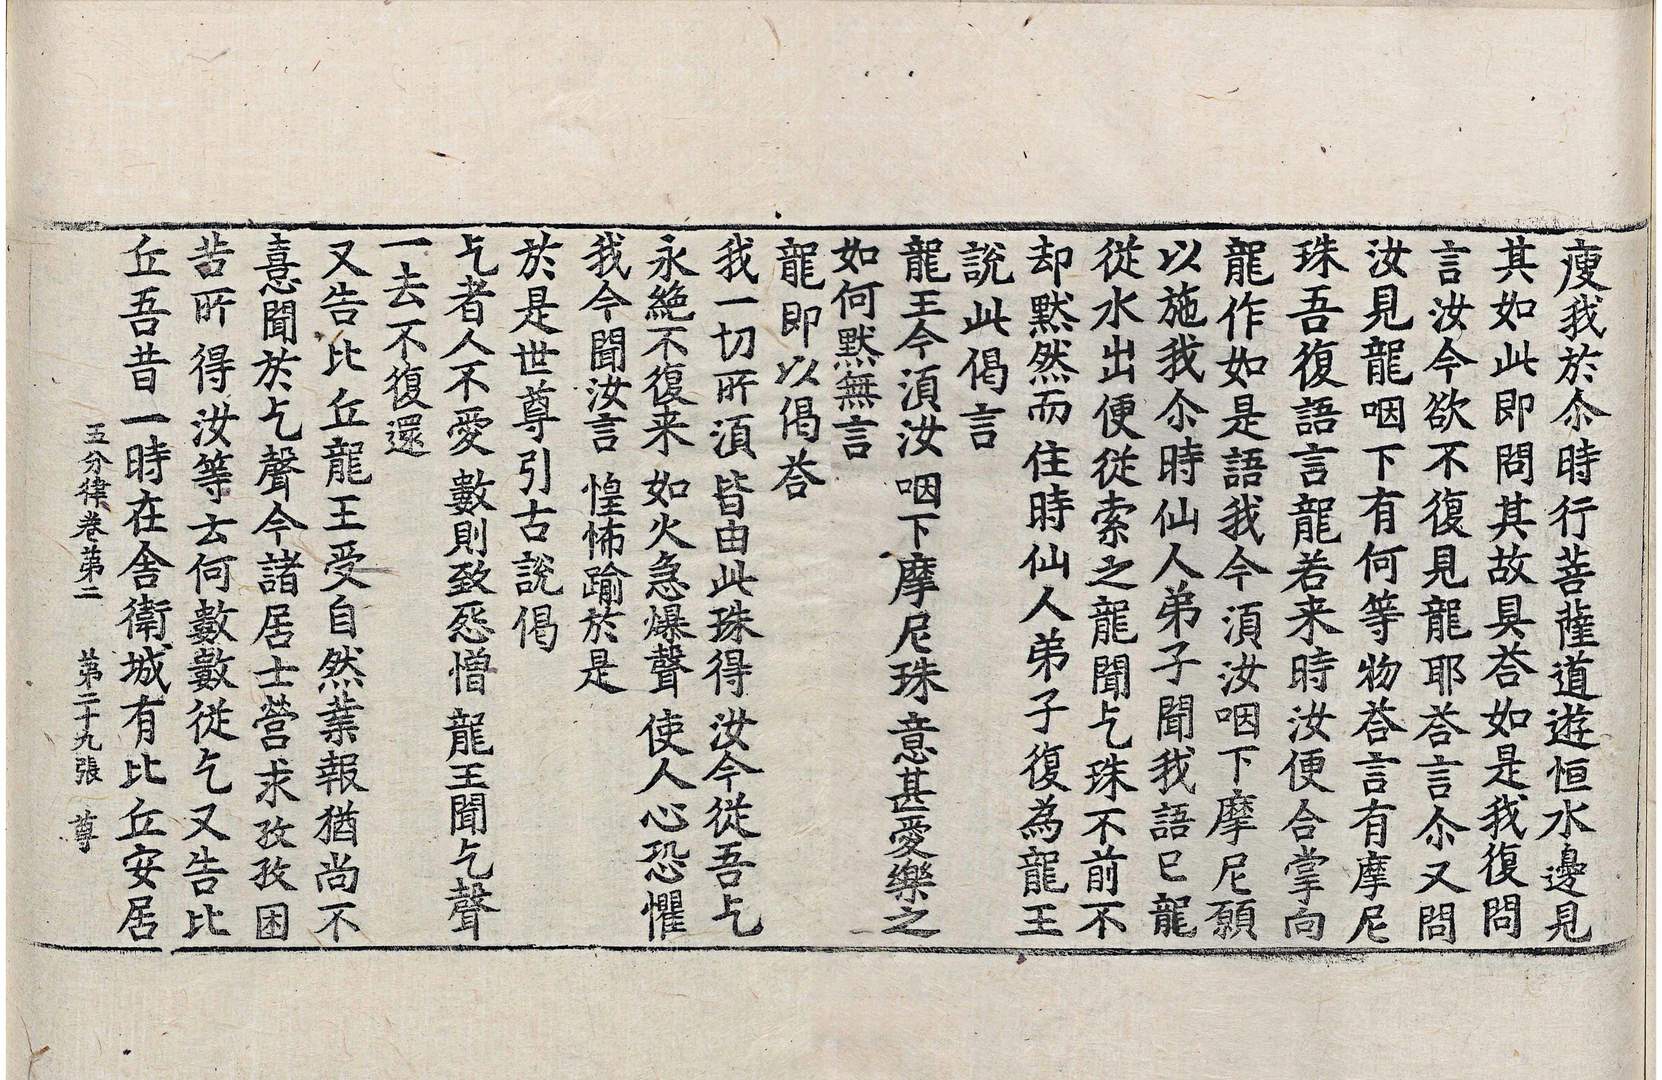 瘦我於尒時行菩薩道遊恒水邊見
其如此即問其故具荅如是我復問
言汝今欲不復見龍耶荅言尒又問
汝見龍咽下有何等物荅言有摩尼
珠吾復語言龍若来時汝便合掌向
龍作如是語我今湏汝咽下摩尼願
以施我尒時仙人弟子聞我語已龍
從水出便從索之龍聞乞珠不前不
却黙然而住時仙人弟子復為龍王
說此偈言
龍王今湏汝 咽下摩尼珠 意甚愛樂之
如何黙無言
龍即以偈荅
我一切所湏 皆由此珠得 汝今從吾乞
永絶不復来 如火急爆聲 使人心恐懼
我今聞汝言 惶怖踰於是
於是世尊引古說偈
乞者人不愛 數則致怨憎 龍王聞乞聲
一去不復還
又告比丘龍王受自然業報猶尚不
憙聞於乞聲今諸居士營求孜孜困
苦所得汝等云何數數從乞又告比
丘吾昔一時在舍衛城有比丘安居
五分律卷第二 第二十九張 尊